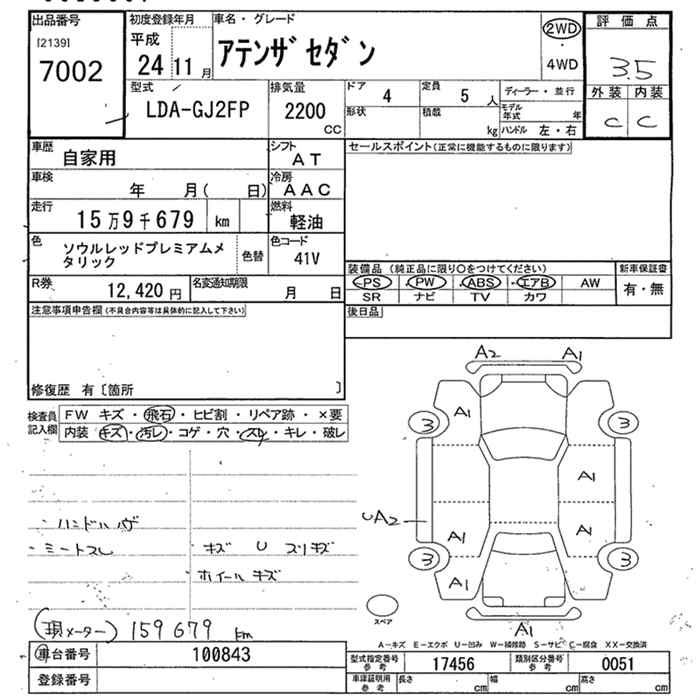 出品番号 初度登録年月 車名・グレード 評価点
[2139] 平成 アテンザセダン 2WD
7002 24 11月 ・ 3.5
4WD
型式 排気量 ドア 4 定員 5人 ディーラー・並行 外装 内装
LDA-GJ2FP 2200 CC 形状 積載 kg モデル年式 年 C C
ハンドル 左・右
車歴 自家用 シフト AT セールスポイント(正常に機能するものに限ります)
車検 年 月( 日) 冷房 AAC
走行 15万9千679 km 燃料 軽油
色 ソウルレッドプレミアムメ 色替 色コード 41V
タリック
装備品 (純正品に限り○をつけてください) 新車保証書
R券 12,420円 名変通知期限 月 日 PS PW ABS エアB AW 有・無
SR ナビ TV カワ
注意事項申告欄(不具合内容等は具体的に記入して下さい) 後日品
修復歴 有〔箇所 〕
検査員 FW キズ・飛石・ヒビ割・リペア跡・×要
記入欄 内装 キズ・汚レ・コゲ・穴・スレ・キレ・破レ
A2 A1
A1
3 3
A1
UA2
A1 A1
3 3
A1
A1
・ハンドル
・シートスレ ・キズ U スリキズ
ホイールキズ
スペア
(現メーター) 159679 km
A-キズ E-エクボ U-凹み W-補修跡 S-サビ C-腐食 XX-交換済
車台番号 100843 型式指定番号 参考 17456 類別区分番号 参考 0051
登録番号 車庫証明用 参考 長さ cm 幅 cm 高さ cm